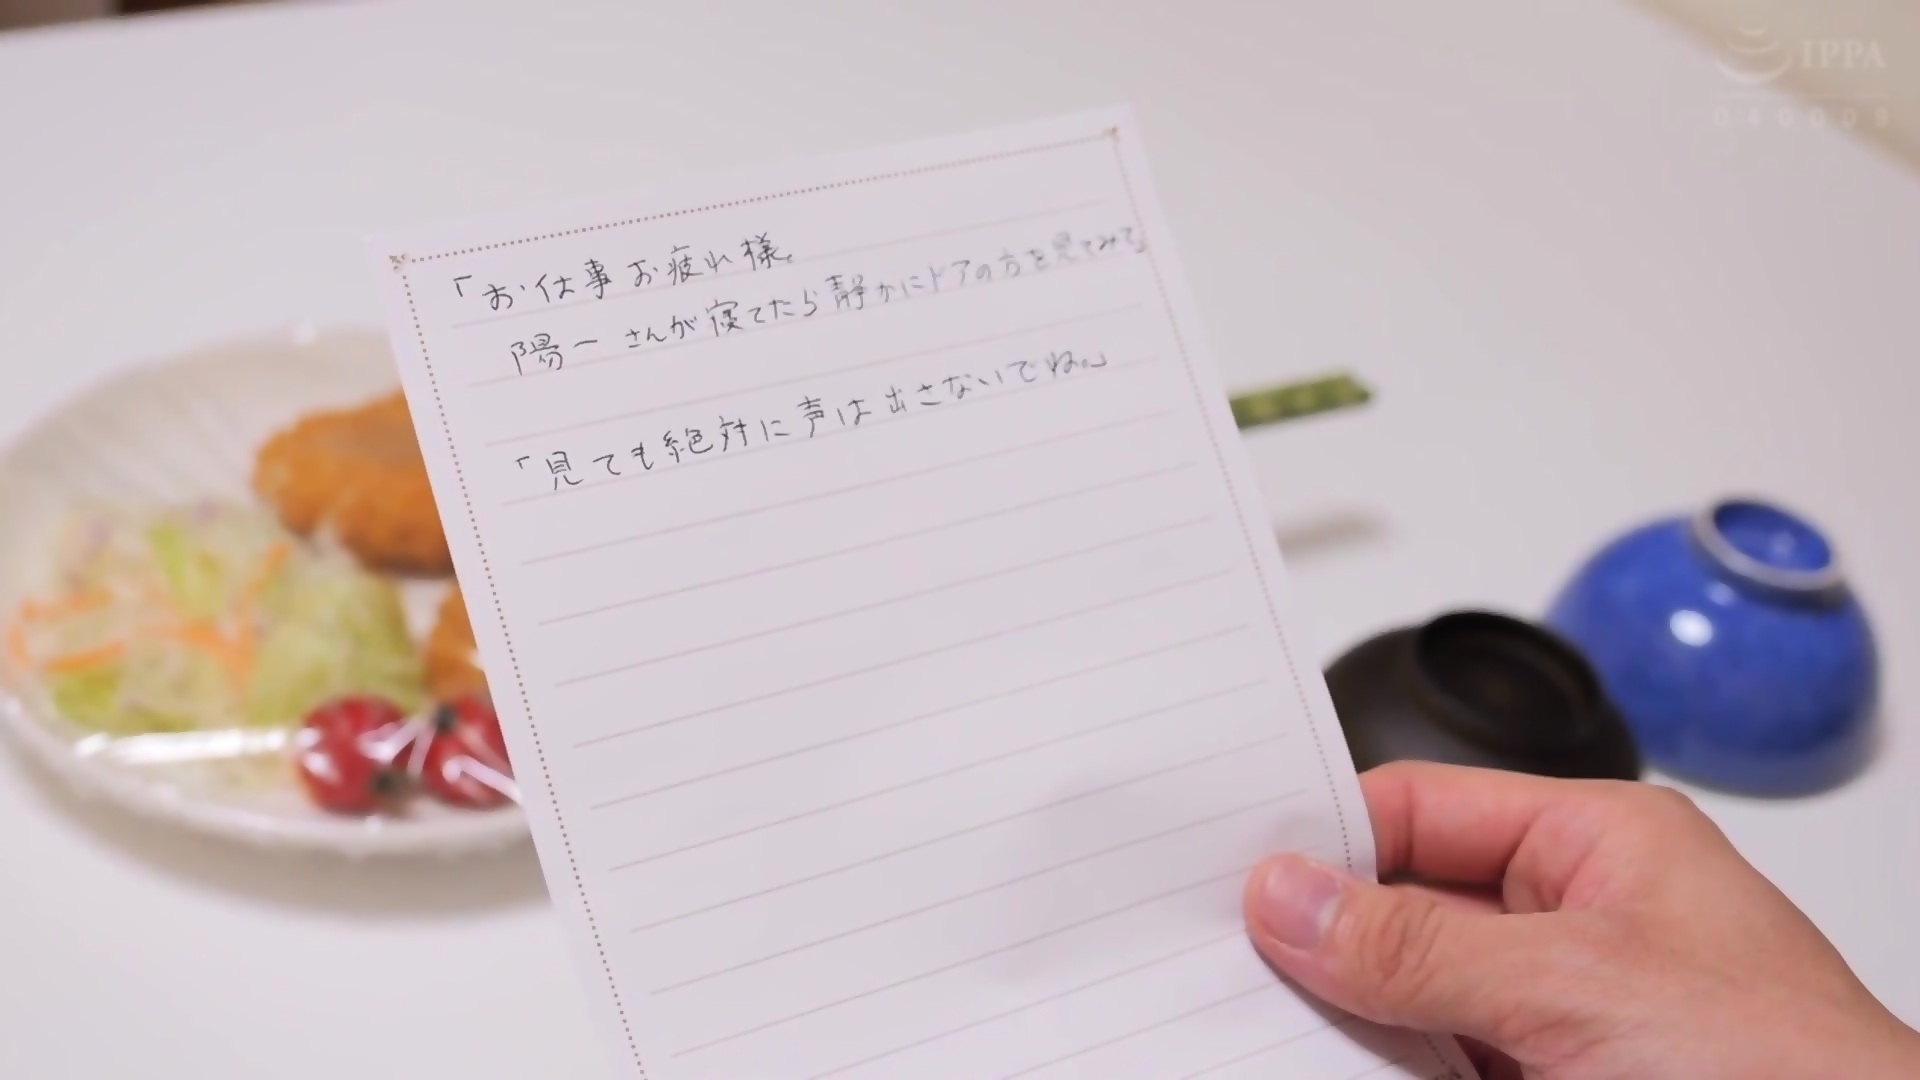 「お仕事お疲れ様。
陽一さんが寝てたら静かにドアの方を見てみて」
「見ても絶対に声は出さないでね」
IPPA
040009